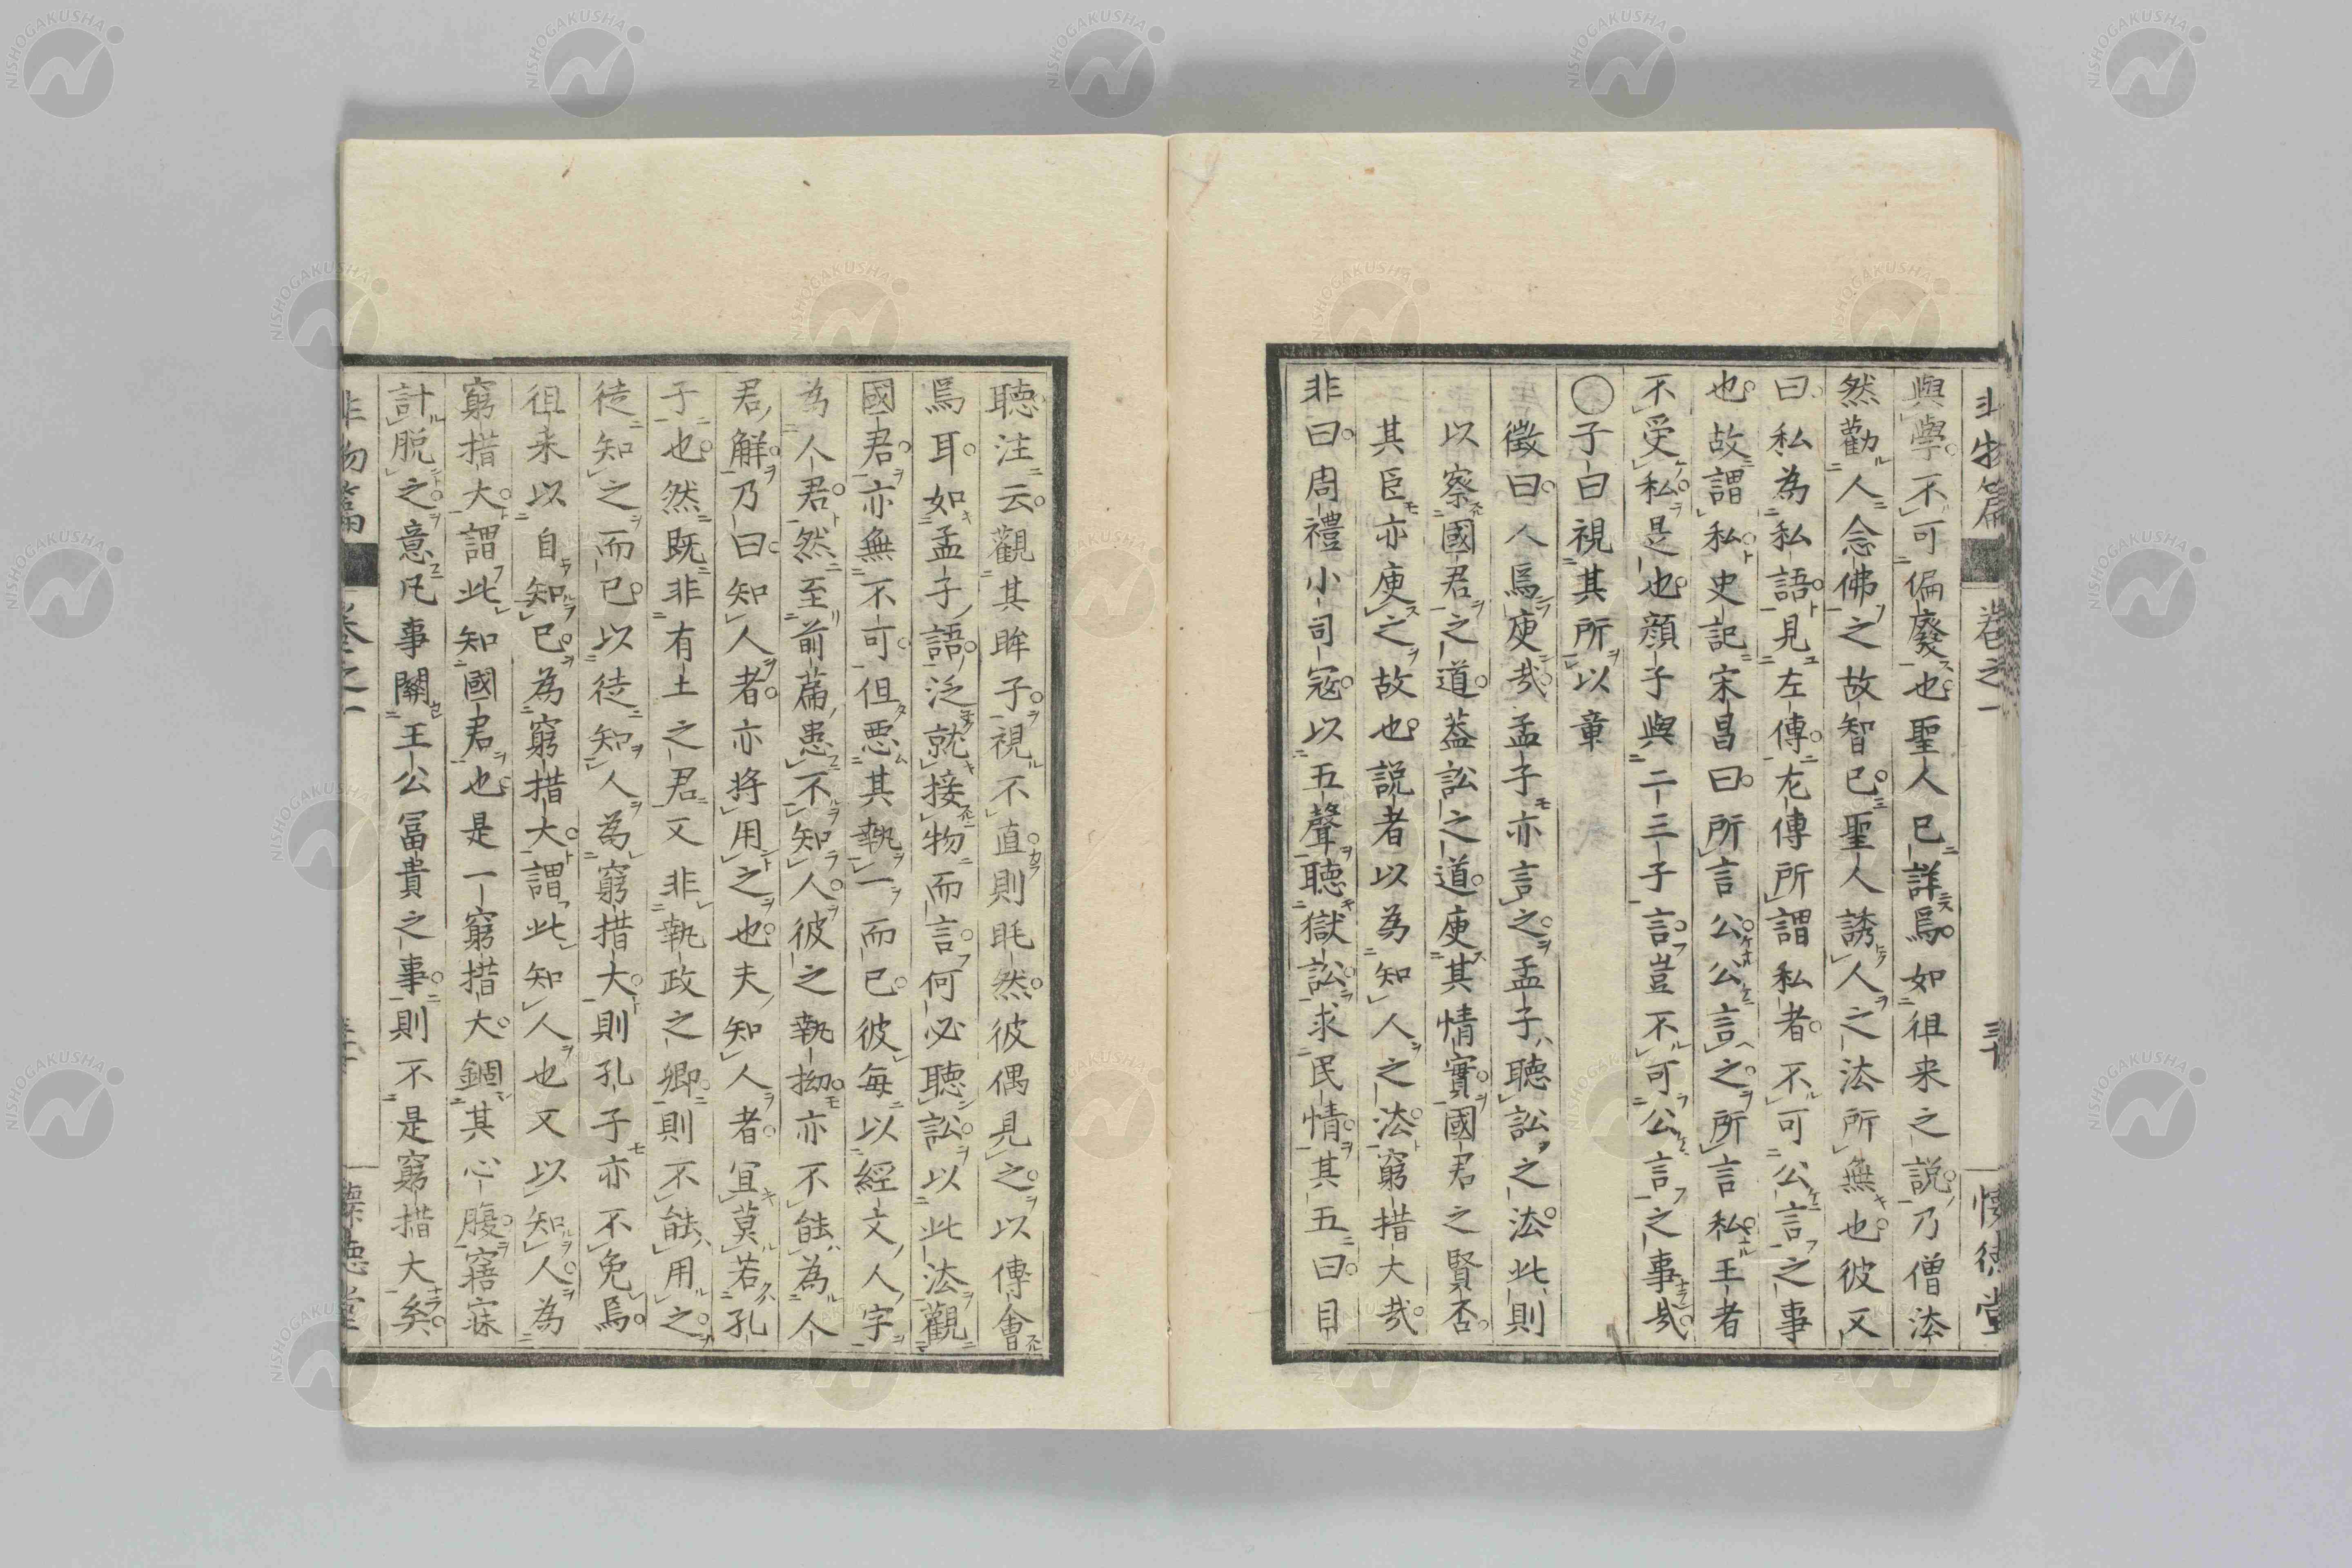 非物篇 卷之一 懷德堂
與學不可偏廢也聖人已詳焉如徂来之説乃僧法
然勸人念佛之故智已聖人誘人之法所無也彼又
曰私為私語見左傳尤傳所謂私者不可公言之事
也故謂私史記宋昌曰所言公公言之所言私王者
不受私是也顔子與二三子言豈不可公言之事哉
〇子曰視其所以章
徴曰人焉廋哉孟子亦言之孟子聴訟之法此則
以察國君之道蓋訟之道廋其情實國君之賢否
其臣亦廋之故也説者以為知人之法窮措大哉
非曰周禮小司寇以五聲聴獄訟求民情其五曰目
聴注云觀其眸子視不直則眊然彼偶見之以傳會
焉耳如孟子語泛就接物而言何必聴訟以此法觀
國君亦無不可但悪其執一而已彼毎以經文人字
為人君然至前篇患不知人彼之執拗亦不能為人
君解乃曰知人者亦将用之也夫知人者宜莫若孔
子也然既非有土之君又非執政之卿則不能用之
徒知之而已以徒知人為窮措大則孔子亦不免焉
徂来以自知已為窮措大謂此知人也又以知人為
窮措大謂此知國君也是一窮措大錮其心腹寤寐
計脱之意凡事關王公冨貴之事則不是窮措大矣
非物篇 卷之一 懷德堂
NISHOGAKUSHA